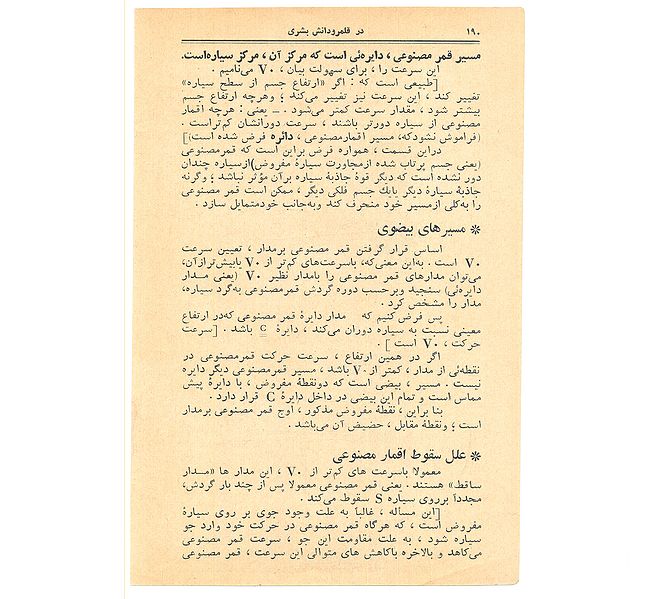 ۱۹۰
در قلمرودانش بشری
مسیر قمر مصنوعی ، دایره‌ئی است که مرکز آن ، مرکز سیاره‌است.
این سرعت را ، برای سهولت بیان ، V۰ می‌نامیم .
[طبیعی است که : اگر «ارتفاع جسم از سطح سیاره»
تغییر کند ، این سرعت نیز تغییر می‌کند ؛ وهرچه ارتفاع جسم
بیشتر شود ، مقدار سرعت کمتر می‌شود . ــ یعنی : هرچه اقمار
مصنوعی از سیاره دورتر باشند ، سرعت دورانشان کم‌تراست .
(فراموش نشودکه، مسیر اقمارمصنوعی ، دائره فرض شده است)]
دراین قسمت ، همواره فرض براین است که قمرمصنوعی
(یعنی جسم پرتاب شده ازمجاورت سیارهٔ مفروض)ازسیاره چندان
دور نشده است که دیگر قوهٔ جاذبهٔ سیاره برآن مؤثر نباشد ؛ وگرنه
جاذبهٔ سیارهٔ دیگر یایك جسم فلکی دیگر ، ممکن است قمر مصنوعی
را به‌کلی ازمسیر خود منحرف کند وبه‌جانب خودمتمایل سازد .
* مسیرهای بیضوی
اساس قرار گرفتن قمر مصنوعی برمدار ، تعیین سرعت
V۰ است . به‌این معنی‌که، باسرعت‌های کم‌تر از V۰ یابیش‌ترازآن،
می‌توان مدارهای قمر مصنوعی را بامدار نظیر V۰ (یعنی مـدار
دایره‌ئی) سنجید وبرحسب دوره گردش قمرمصنوعی به‌گرد سیاره،
مدار را مشخص کرد .
پس فرض کنیم که مدار دایرهٔ قمر مصنوعی که‌در ارتفاع
معینی نسبت به سیاره دوران می‌کند ، دایرهٔ C باشد . [سرعت
حرکت ، V۰ است ] .
اگر در همین ارتفاع ، سرعت حرکت قمرمصنوعی در
نقطه‌ئی از مدار ، کمتر از V۰ باشد ، مسیر قمرمصنوعی دیگر دایره
نیست . مسیر ، بیضی است که دونقطهٔ مفروض ، با دایرهٔ پیش
مماس است و تمام این بیضی در داخل دایرهٔ C قرار دارد .
بنا براین ، نقطهٔ مفروض مذکور ، اوج قمر مصنوعی برمدار
است ؛ ونقطهٔ مقابل ، حضیض آن می‌باشد .
* علل سقوط اقمار مصنوعی
معمولا باسرعت های کم‌تر از V۰ ، این مدار ها «مـدار
ساقط» هستند . یعنی قمر مصنوعی معمولا پس از چند بار گردش،
مجدداً برروی سیاره S سقوط می‌کند .
[این مسأله ، غالباً به علت وجود جوی بر روی سیارهٔ
مفروض است ، که هرگاه قمر مصنوعی در حرکت خود وارد جو
سیاره شود ، به علت مقاومت این جو ، سرعت قمر مصنوعی
می‌کاهد و بالاخره باکاهش های متوالی این سرعت ، قمر مصنوعی